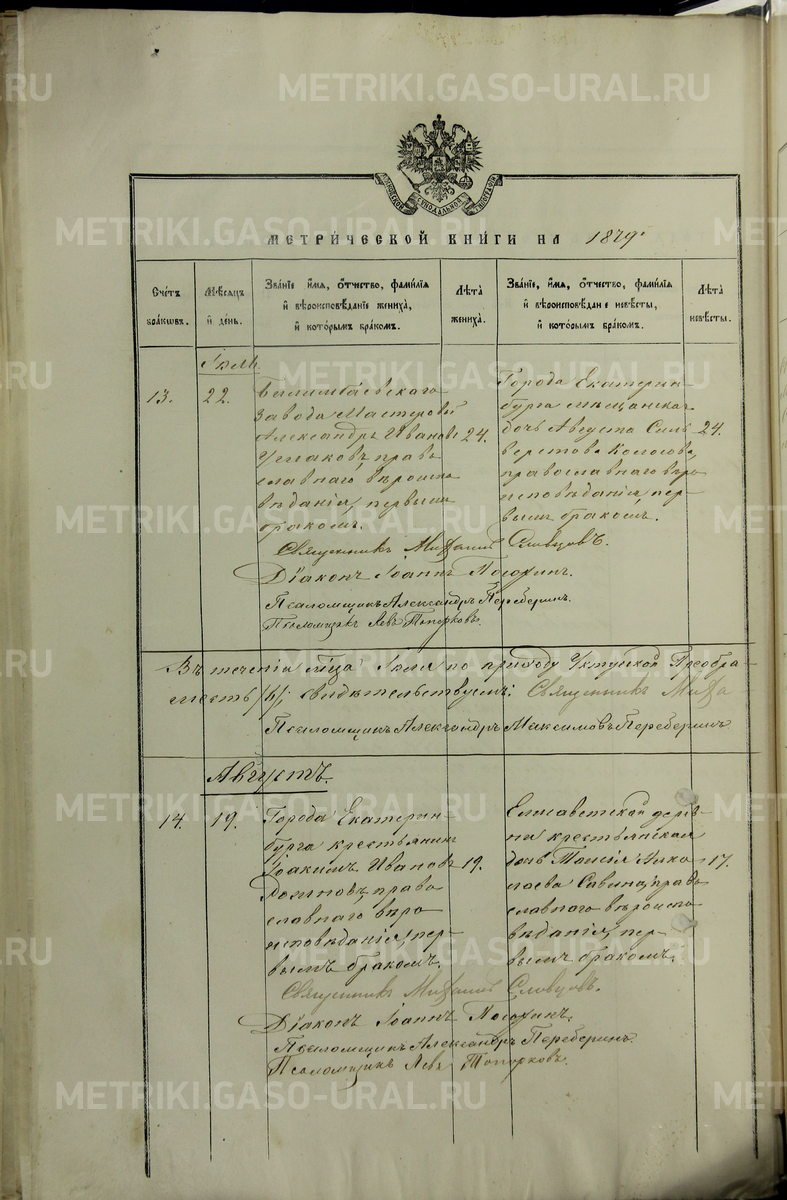 METRIKI.GASO-URAL.RU
МОСКОВСКОЙ СѴНОДАЛЬНОЙ ТИПОГРАФІИ
МЕТРИ́ЧЕСКОЙ КНИ́ГИ НА 1879
Сче́тъ бра́кωвъ.
Мѣ́сяцъ и҆ де́нь.
Зва́нїе и҆́мя, ѻ҆́тчество, фами́лїя и҆ вѣроисповѣ́данїе жениха̀, и҆ кото́рымъ бра́комъ.
Лѣ́та жениха̀.
Зва́нїе, и҆́мя, ѻ҆́тчество, фами́лїя и҆ вѣроисповѣ́данїе невѣ́сты, и҆ кото́рымъ бра́комъ.
Лѣ́та невѣ́сты.
Іюль
13.
22.
Билимбаевскаго
завода мастеровой
Александръ Ивановъ
православнаго вѣроиспо-
вѣданія, первымъ
бракомъ.
24.
Города Екатерин-
бурга мѣщанская
дочь Августа Силь-
верстова Колосова,
православнаго вѣро-
исповѣданія, пер-
вымъ бракомъ.
24.
Священникъ Михаилъ Словцовъ.
Діаконъ Іоаннъ
Псаломщикъ Александръ Переберинъ.
Псаломщикъ Левъ Топорковъ.
Въ теченіи мѣсяца Іюля по приходу Уктусской Преобра-
свидѣтельствуемъ: Священникъ Миха
Псаломщикъ Александръ Максимовъ Переберинъ
Августъ.
14.
19.
Города Екатерин-
бурга крестьянинъ
Іоакимъ Ивановъ
право-
славнаго вѣро-
исповѣданія, пер-
вымъ бракомъ.
19.
Елисаветской дерев-
ни крестьянская
дочь Таисія Нико-
лаева Савина, право-
славнаго вѣроиспо-
вѣданія, пер-
вымъ бракомъ.
17.
Священникъ Михаилъ Словцовъ.
Діаконъ Іоаннъ
Псаломщикъ Александръ Переберинъ.
Псаломщикъ Левъ Топорковъ.